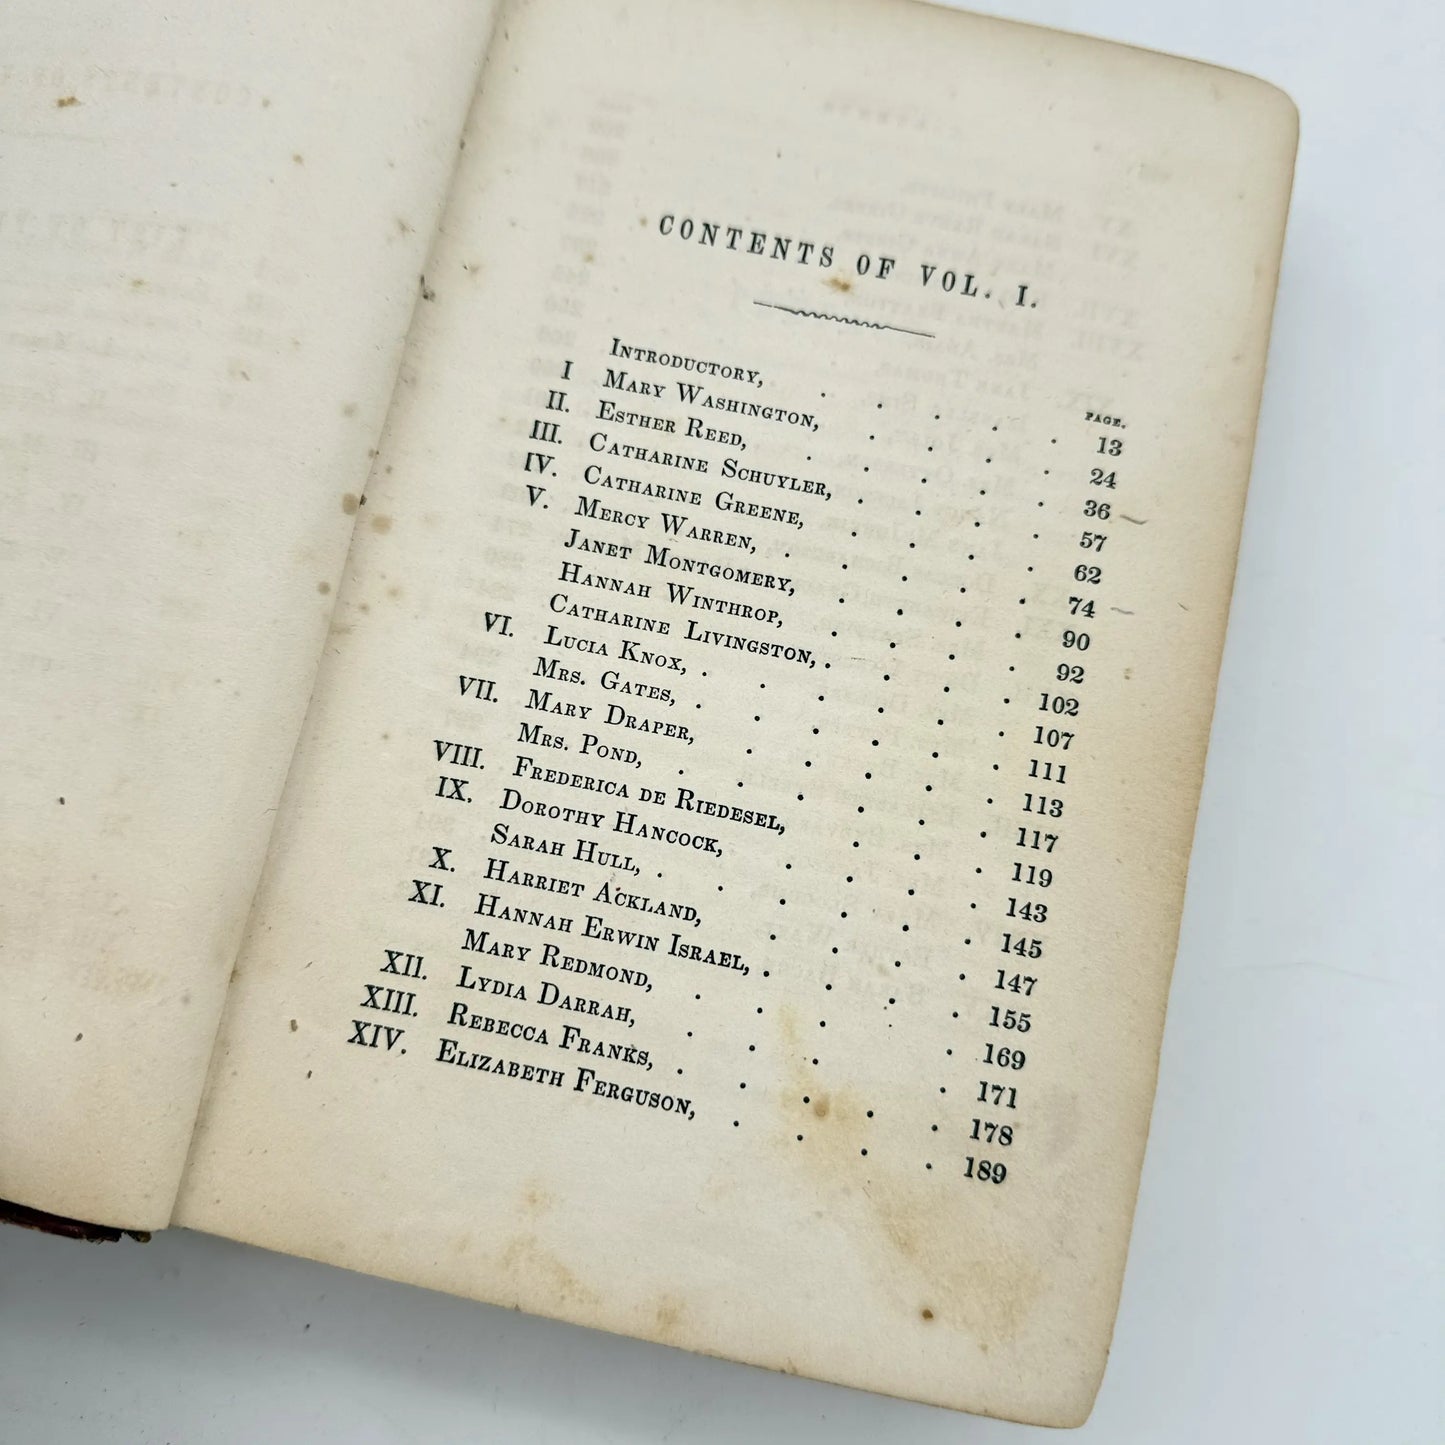 CONTENTS OF VOL. I.
PAGE.
INTRODUCTORY, . . . . . 13
I MARY WASHINGTON, . . . . . 24
II. ESTHER REED, . . . . . 36
III. CATHARINE SCHUYLER, . . . . 57
IV. CATHARINE GREENE, . . . . 62
V. MERCY WARREN, . . . . . 74
JANET MONTGOMERY, . . . . 90
HANNAH WINTHROP, . . . . 92
CATHARINE LIVINGSTON, . . . . 102
VI. LUCIA KNOX, . . . . . 107
MRS. GATES, . . . . . 111
VII. MARY DRAPER, . . . . . 113
MRS. POND, . . . . . 117
VIII. FREDERICA DE RIEDESEL, . . . . 119
IX. DOROTHY HANCOCK, . . . . 143
SARAH HULL, . . . . . 145
X. HARRIET ACKLAND, . . . . 147
XI. HANNAH ERWIN ISRAEL, . . . . 155
MARY REDMOND, . . . . 169
XII. LYDIA DARRAH, . . . . 171
XIII. REBECCA FRANKS, . . . . . 178
XIV. ELIZABETH FERGUSON, . . . . 189